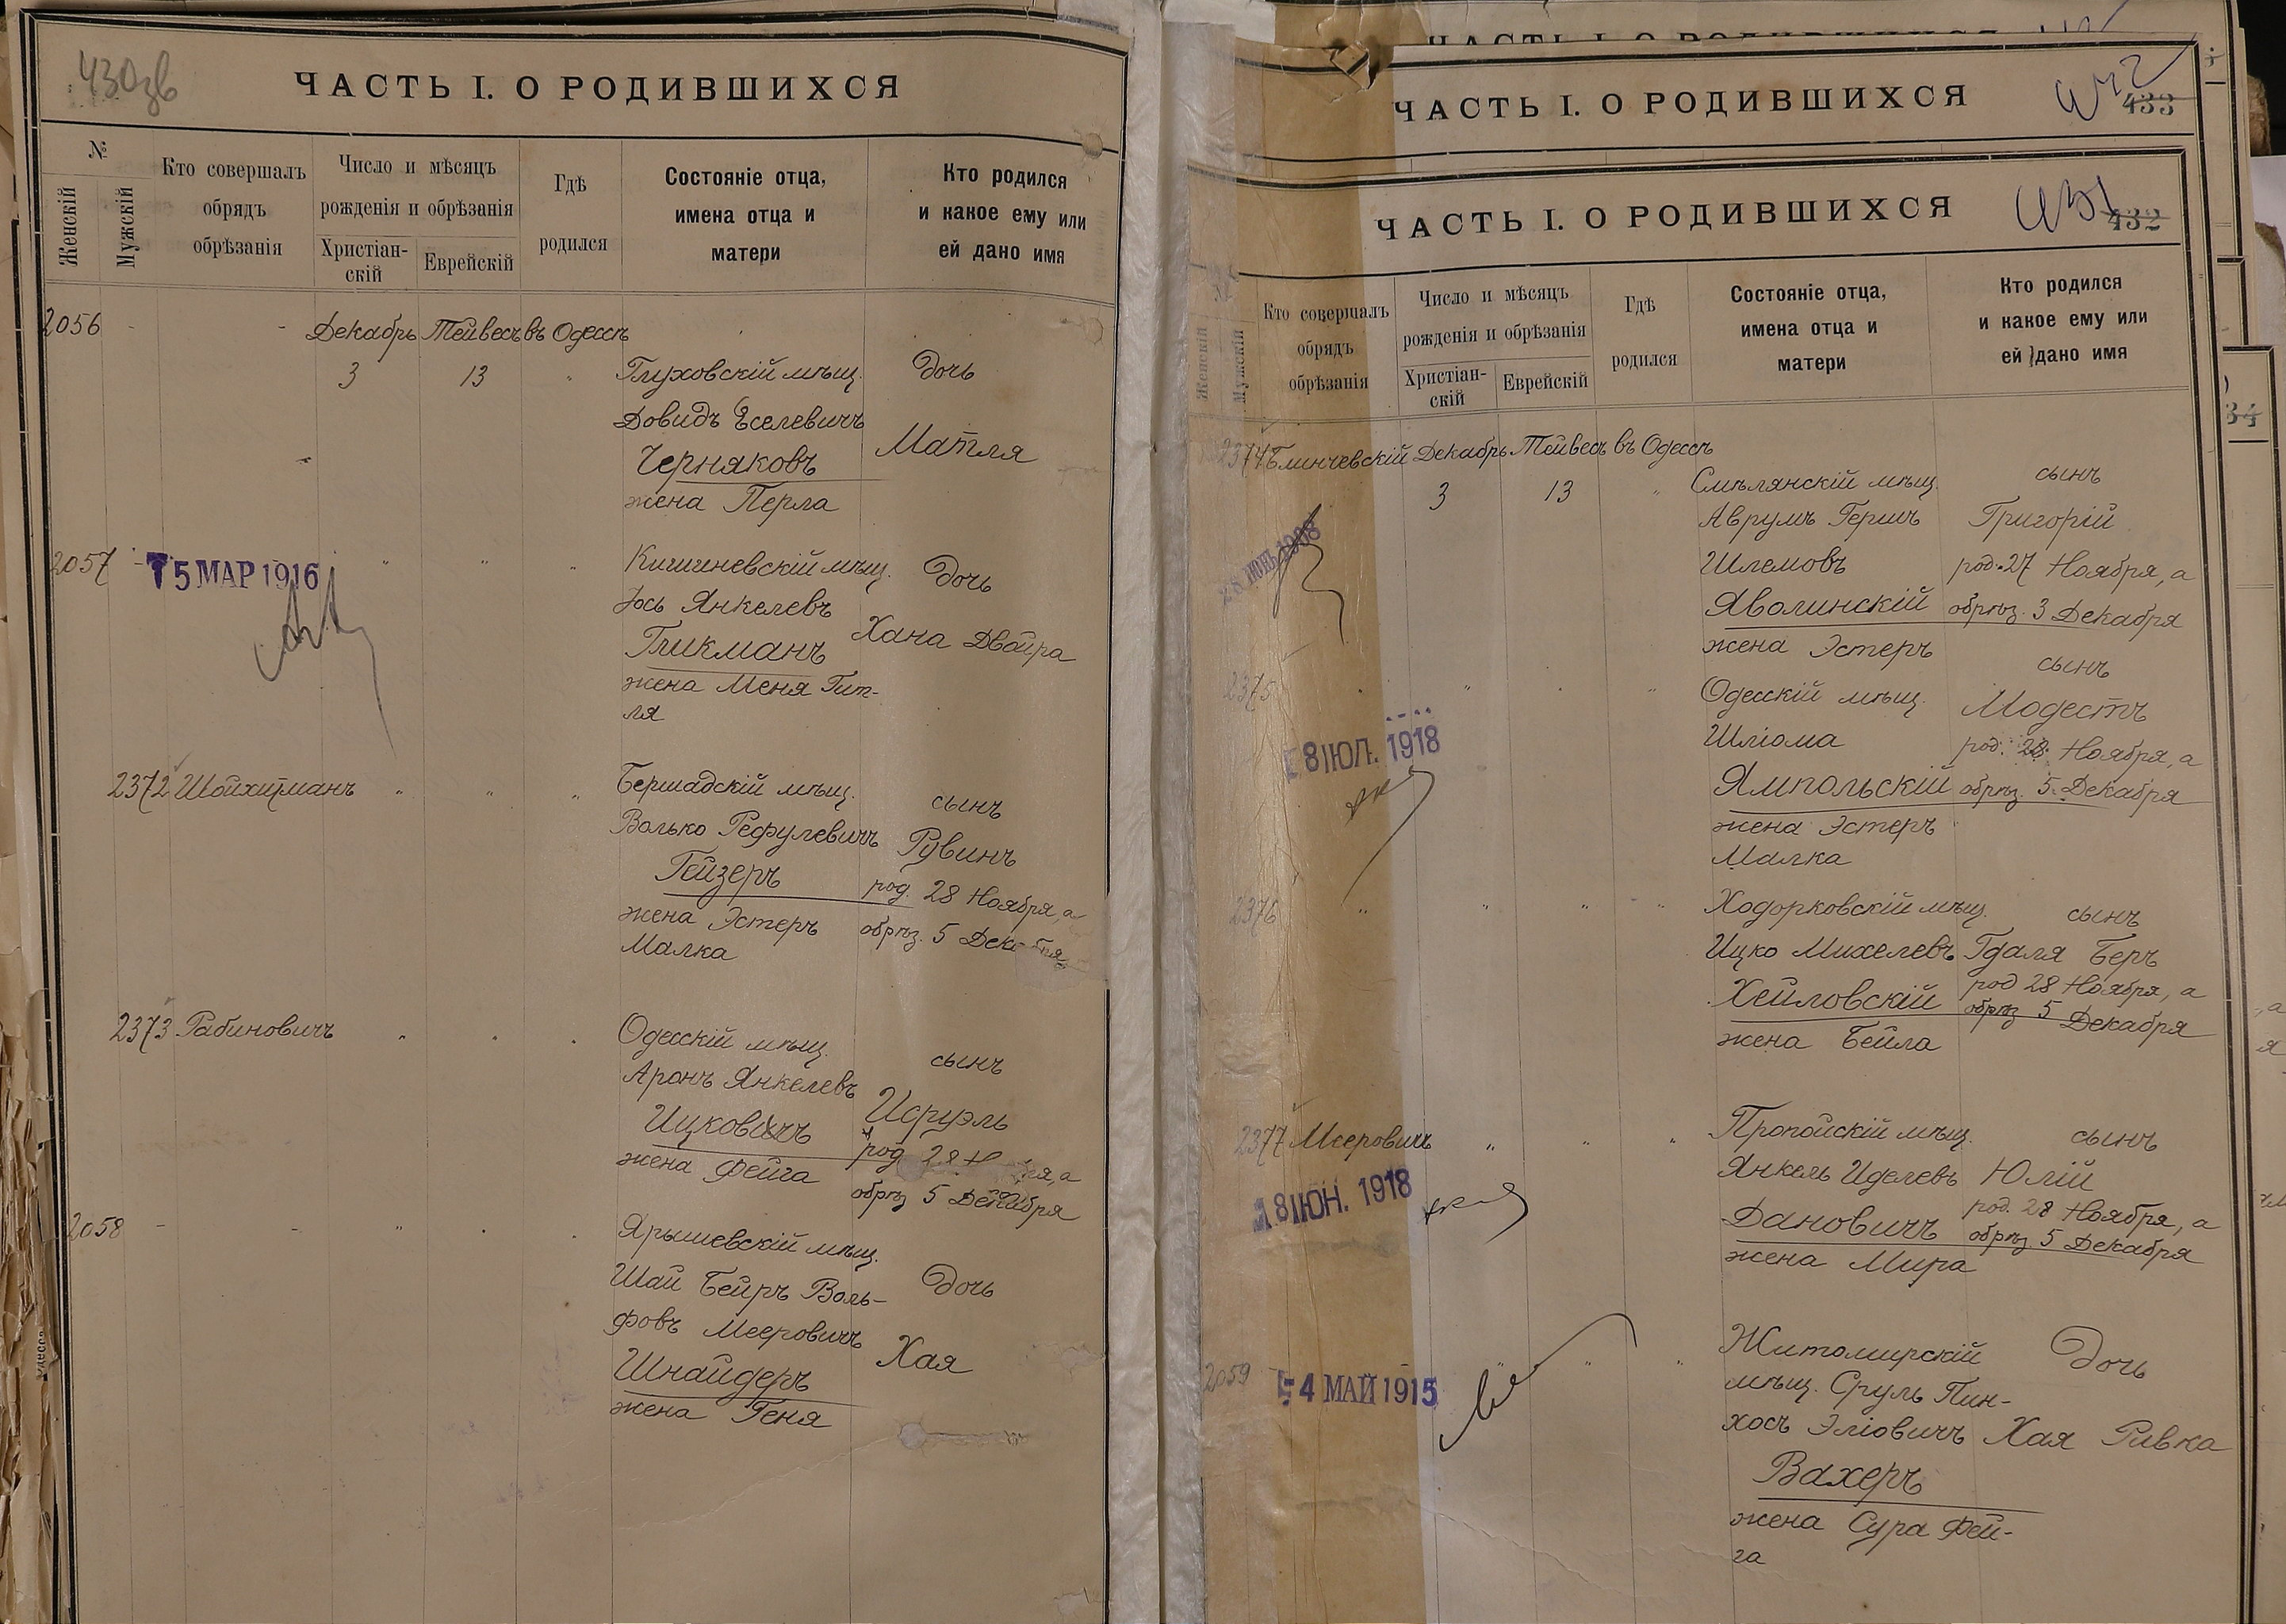 ЧАСТЬ I. О РОДИВШИХСЯ
№
Женскій
Мужскій
Кто совершалъ
обрядъ
обрѣзанія
Число и мѣсяцъ
рожденія и обрѣзанія
Христіан-
скій
Еврейскій
Гдѣ
родился
Состояніе отца,
имена отца и
матери
Кто родился
и какое ему или
ей дано имя
2056 - - Декабрь Тейвесъ въ Одессѣ
3 13 " Глуховскій мѣщ. Дочь
Довидъ Еселевичъ
Черняковъ Матля
жена Перла
2057 - " " " Кишиневскій мѣщ. Дочь
15 МАР 1916
Іось Янкелевъ
Гликманъ Хана Двойра
жена Меня Гит-
ля
2372 Шойхитманъ " " " Бершадскій мѣщ. сынъ
Волько Рефулевичъ Рувинъ
Гейзеръ род. 28 Ноября, а
жена Эстеръ обрѣз. 5 Декабря
Малка
2373 Рабиновичъ " " " Одесскій мѣщ. сынъ
Аронъ Янкелевъ
Ицковичъ Исруэль
род. 28 Ноября, а
жена Фейга обрѣз 5 Декабря
2058 - - " " " Ярышевскій мѣщ.
Шай Бейръ Воль- Дочь
фовъ Мееровичъ
Шнайдеръ Хая
жена Геня
ЧАСТЬ I. О РОДИВШИХСЯ
433
ЧАСТЬ I. О РОДИВШИХСЯ
432
Женскій
Мужскій
Кто совершалъ
обрядъ
обрѣзанія
Число и мѣсяцъ
рожденія и обрѣзанія
Христіан-
скій
Еврейскій
Гдѣ
родился
Состояніе отца,
имена отца и
матери
Кто родился
и какое ему или
ей дано имя
34
2374 Блинчевскій Декабрь Тейвесъ въ Одессѣ
3 13 " Смѣлянскій мѣщ. сынъ
Аврумъ Гершъ Григорій
Шлемовъ род. 27 Ноября, а
Яволинскій обрѣз. 3 Декабря
жена Эстеръ
2375 " " " Одесскій мѣщ. сынъ
Шліома Модестъ
8 ІЮЛ. 1918
род. 28 Ноября, а
Ямпольскій обрѣз. 5 Декабря
жена Эстеръ
Малка
2376 " " " " Ходорковскій мѣщ. сынъ
Ицко Михелевъ Гдаля Беръ
род 28 Ноября, а
Хейловскій обрѣз 5 Декабря
жена Бейла
2377 Мееровичъ " " " Пропойскій мѣщ. сынъ
Янкель Иделевъ Юлій
18 ІЮН. 1918
род. 28 Ноября, а
Дановичъ обрѣз. 5 Декабря
жена Мира
2059 - " " " Житомирскій Дочь
4 МАЙ 1915
мѣщ. Сруль Пин-
хосъ Эліовичъ Хая Ривка
Вахеръ
жена Сура Фей-
га